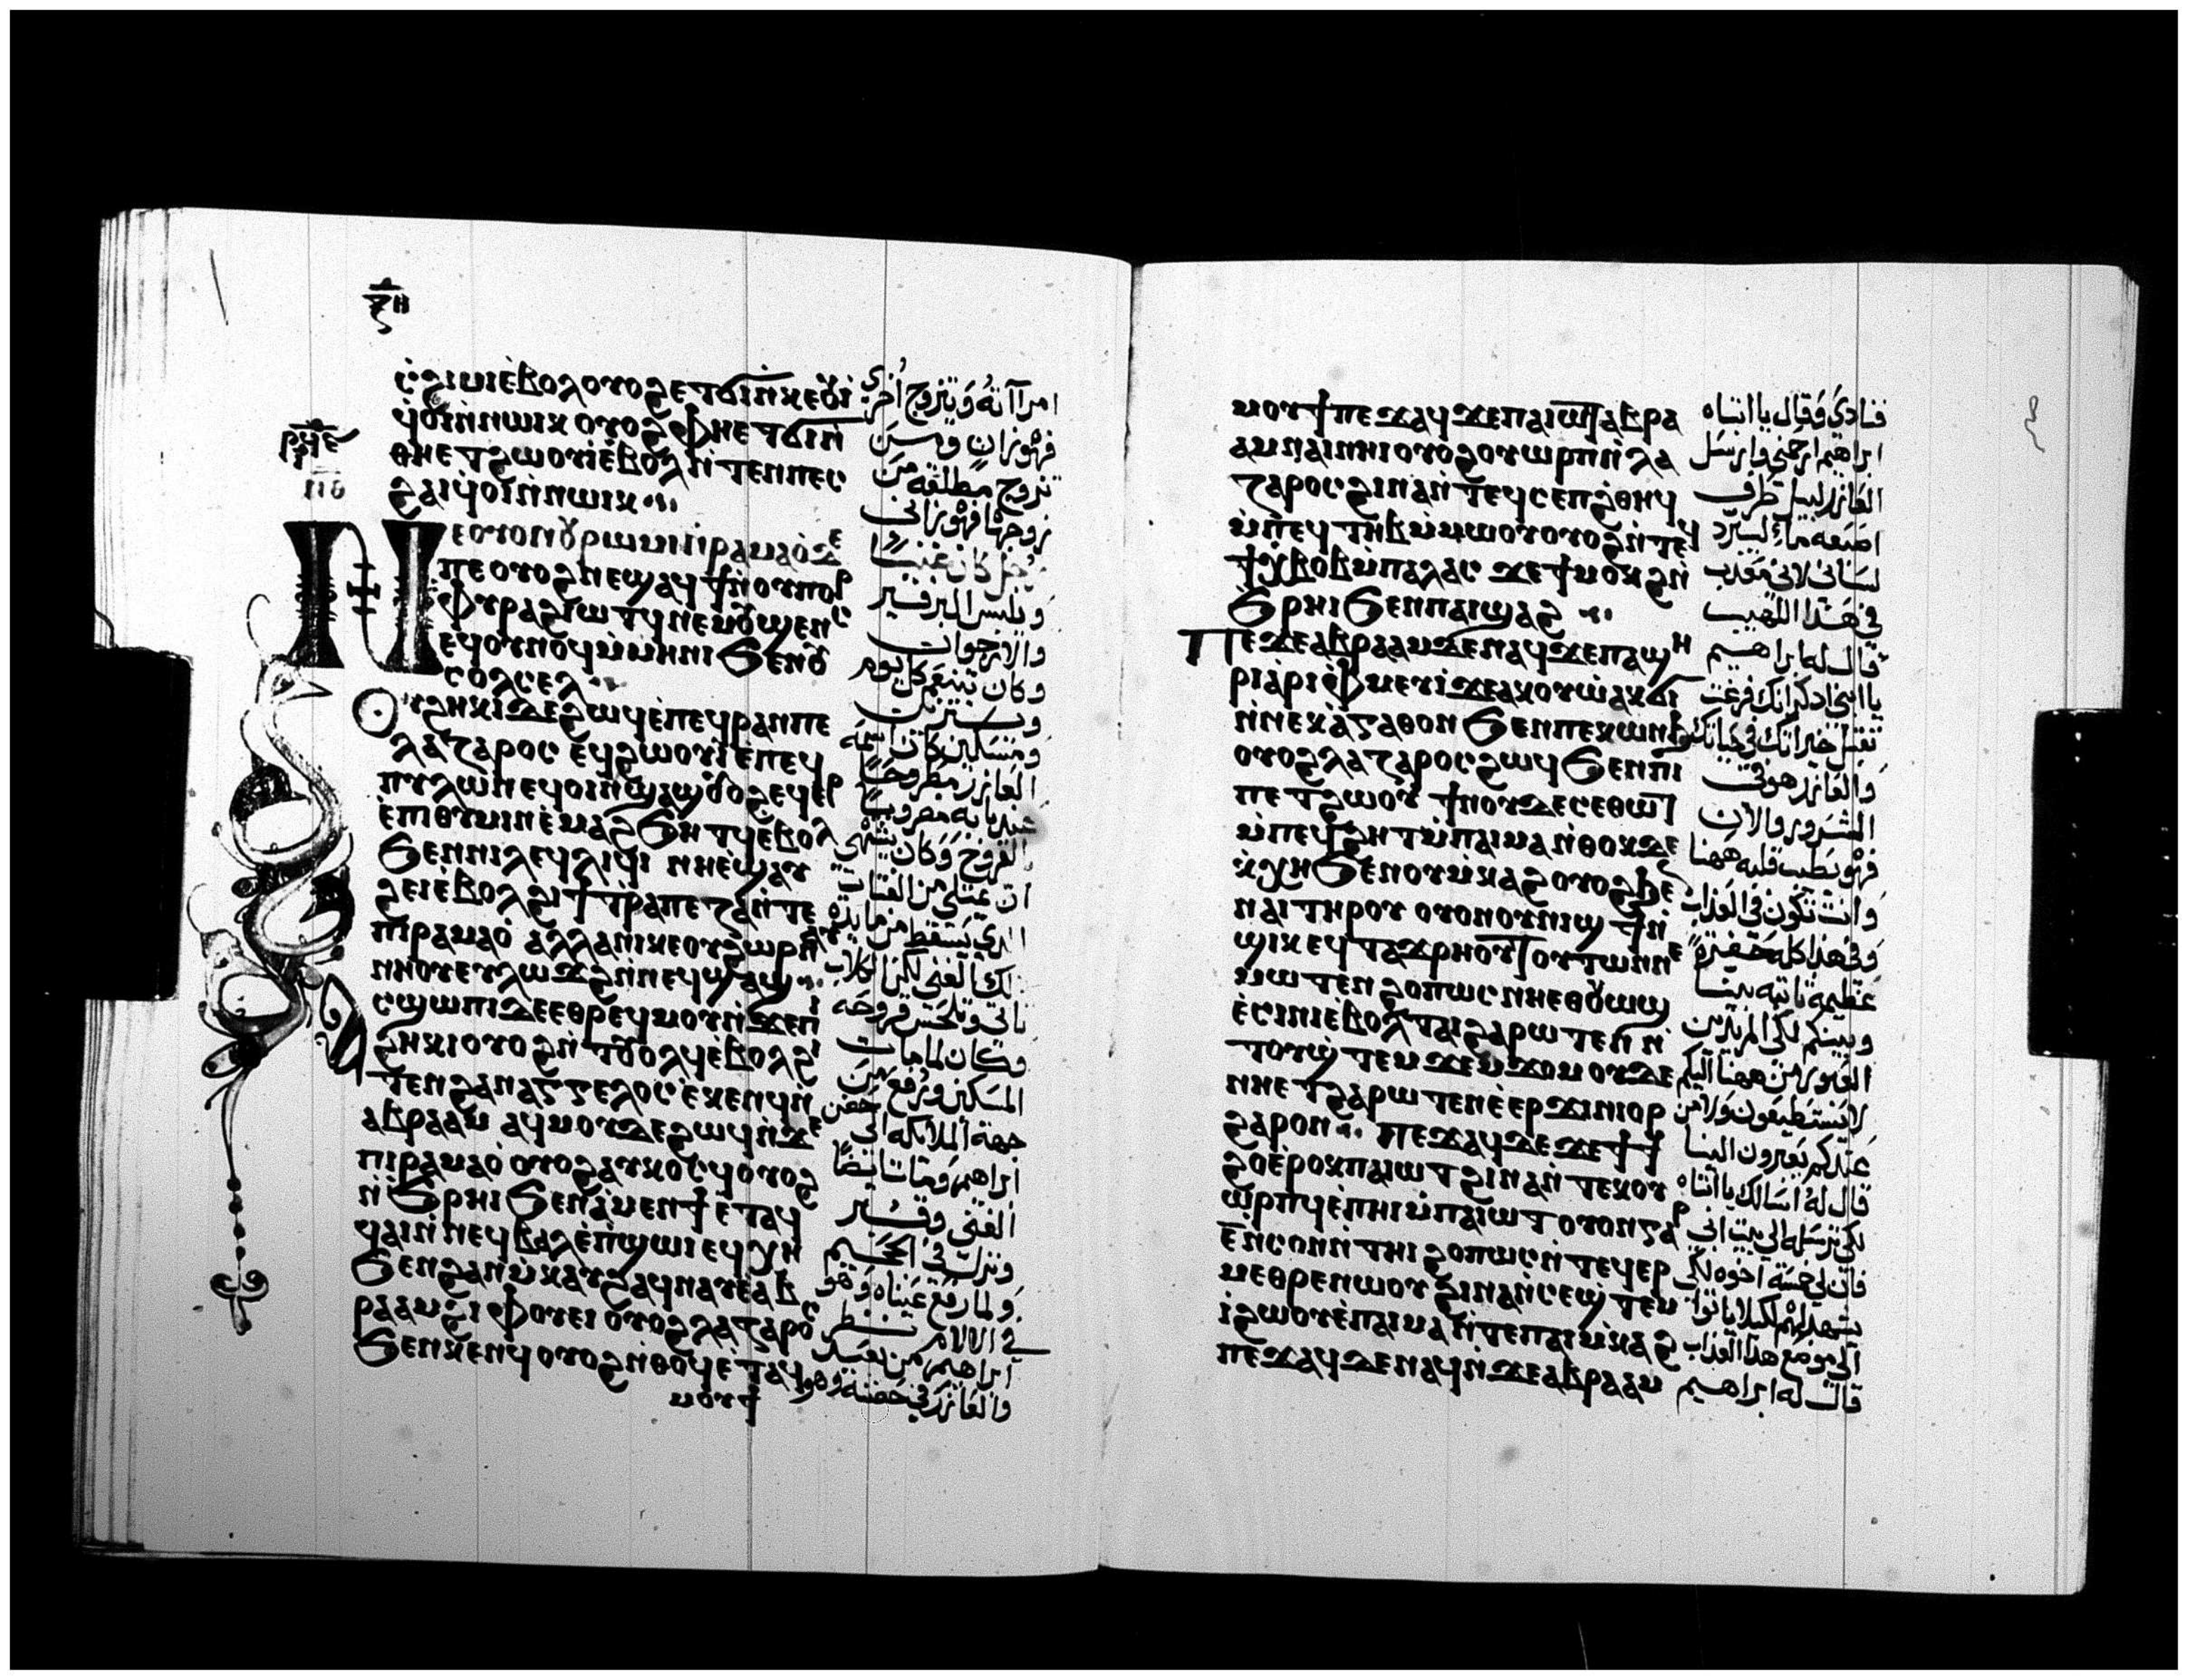 ⲝⲏ
ⲥϩⲓⲙⲓ ⲉ̀ⲃⲟⲗ ⲟⲩⲟϩ ⲉⲧϭⲓ ⲛ̀ⲕⲉⲟⲩⲓ̀
ϥ̀ⲟⲓ ⲛ̀ⲛⲱⲓⲕ ⲟⲩⲟϩ ⲫⲏⲉⲧϭⲓ ⲛ̀
ⲑⲏⲉⲧϩⲱⲟⲩⲓ̀ ⲉ̀ⲃⲟⲗ ⲛ̀ⲧⲉⲛ ⲡⲉⲥ
ϩⲁⲓ ϥ̀ⲟⲓ ⲛ̀ⲛⲱⲓⲕ
ⲛⲉⲟⲩⲟⲛ ⲟⲩⲣⲱⲙⲓ ⲛ̀ⲣⲁⲙⲁⲟ̀ ⲇⲉ
ⲡⲉ ⲟⲩⲟϩ ⲛⲉϣⲁϥϯ ⲛ̀ⲟⲩⲡⲟⲣ
ⲫⲩⲣⲁ ϩⲓⲱⲧϥ ⲛⲉⲙ ⲟⲩϣⲉⲛⲥ
ⲉϥⲟⲩⲛⲟϥ ⲙ̀ⲙⲏⲛⲓ ϧⲉⲛ ⲟⲩ
ⲥⲟⲗⲥⲉⲗ
ⲟⲩϩⲏⲕⲓ ⲇⲉ ϩⲱϥ ⲉ̀ⲡⲉϥⲣⲁⲛ ⲡⲉ
ⲗⲁⲍⲁⲣⲟⲥ ⲉϥϩⲱⲟⲩⲓ̀ ⲉⲡⲉϥ
ⲡⲩⲗⲱⲛ ⲉϥⲟⲓ ⲛ̀ϣⲁϣ ⲟⲩⲟϩ ⲉϥⲉⲣ
ⲉ̀ⲡⲓⲑⲩⲙⲓⲛ ⲉ̀ⲙⲁϩ ϧⲏⲧϥ ⲉ̀ⲃⲟⲗ
ϧⲉⲛ ⲛⲓⲗⲉϥⲗⲓϥⲓ ⲛⲏⲉ̀ϣⲁⲩ
ϩⲉⲓ ⲉ̀ⲃⲟⲗ ϩⲓ ϯⲧ̀ⲣⲁⲡⲉⲍⲁ ⲛ̀ⲧⲉ
ⲡⲓⲣⲁⲙⲁⲟ̀ ⲁⲗⲗⲁ ⲛⲓⲕⲉⲟⲩϩⲱⲣ ⲛⲁⲩ
ⲛⲏⲟⲩ ⲉⲩⲗⲱϫϩ ⲛ̀ⲛⲉϥϣⲁϣ ⲁ
ⲥϣⲱⲡⲓ ⲇⲉ ⲉⲑⲣⲉϥⲙⲟⲩ ⲛ̀ϫⲉ ⲡⲓ
ϩⲏⲕⲓ ⲟⲩⲟϩ ⲛ̀ⲧⲟⲩⲟⲗϥ ⲉ̀ⲃⲟⲗ ϩⲓ
ⲧⲉⲛ ϩⲁⲛⲁⲅⲅⲉⲗⲟⲥ ⲉ̀ⲕⲉⲛϥ ⲛ̀
ⲁⲃⲣⲁⲁⲙ ⲁϥⲙⲟⲩ ⲇⲉ ϩⲱϥ ⲛ̀ϫⲉ
ⲡⲓⲣⲁⲙⲁⲟ̀ ⲟⲩⲟϩ ⲁⲩⲕⲟⲥϥ ⲟⲩⲟϩ
ⲛ̀ϧⲣⲏⲓ ϧⲉⲛ ⲁ̀ⲙⲉⲛϯ ⲉ̀ⲧⲁϥ
ϥⲁⲓ ⲛ̀ⲛⲉϥⲃⲁⲗ ⲉ̀ⲡ̀ϣⲱⲓ ⲉϥⲭⲏ
ϧⲉⲛ ϩⲁⲛⲙ̀ⲕⲁⲩϩ ⲁϥⲛⲁⲩ ⲉ̀ⲁⲃ
ⲣⲁⲁⲙ ϩⲓ ⲫⲟⲩⲉⲓ ⲟⲩⲟϩ ⲗⲁⲍⲁⲣⲟⲥ
ϧⲉⲛ ⲕⲉⲛϥ ⲟⲩⲟϩ ⲛ̀ⲑⲟϥ ⲉ̀ⲧⲁϥ
ⲙⲟⲩϯ
امرااته ويتزوج اخري
فهو زان ومن
تزوج مطلقة من
زوجها فهو زاني
رجل كان غنيا
ويلبس البرفير
والارجوان
وكان يتنعم كل يوم
ومسكين كان اسمه
العازر مطروحا
عند بابه مضروبا
بالقروح وكان يشتهي
ان يمتلي من الفتات
الذي يسقط من مايدة
ذلك الغني لكن الكلاب
تاتي وتلحس قروحه
وكان لما مات
المسكين ورفع من
جهة الملايكه الي حضن
ابراهيم ومات ايضا
الغني وقبر
ونزل في الجحيم
ولما رفع عيناه وهو
في الالام نظر
ابراهيم من بعيد
والعازر في حضنه وهو
ⲙⲟⲩϯ ⲡⲉϫⲁϥ ϫⲉ ⲡⲁⲓⲱⲧ ⲁⲃⲣⲁ
ⲁⲙ ⲛⲁⲓ ⲛⲏⲓ ⲟⲩⲟϩ ⲟⲩⲱⲣⲡ ⲛ̀ⲗⲁ
ⲍⲁⲣⲟⲥ ϩⲓⲛⲁ ⲛ̀ⲧⲉϥⲥⲉⲡ ϩ̀ⲑⲏϥ
ⲙ̀ⲡⲉϥⲧⲏⲃ ⲙ̀ⲙⲱⲟⲩ ⲟⲩⲟϩ ⲛ̀ⲧⲉϥ
ϯⲭ̀ⲃⲟⲃ ⲙ̀ⲡⲁⲗⲁⲥ ϫⲉ ϯⲙⲟⲕϩ ⲛ̀
ϧⲣⲏⲓ ϧⲉⲛ ⲡⲁⲓϣⲁϩ
ⲡⲉϫⲉ ⲁⲃⲣⲁⲁⲙ ⲇⲉ ⲛⲁϥ ϫⲉ ⲡⲁϣⲏ
ⲣⲓ ⲁ̀ⲣⲓⲫⲙⲉⲩⲓ̀ ϫⲉ ⲁⲕⲟⲩⲱ ⲁⲕϭⲓ
ⲛ̀ⲛⲉⲕⲁ̀ⲅⲁⲑⲟⲛ ϧⲉⲛ ⲡⲉⲕⲱⲛϧ
ⲟⲩⲟϩ ⲗⲁⲍⲁⲣⲟⲥ ϩⲱϥ ϧⲉⲛ ⲡⲓ
ⲡⲉⲧϩⲱⲟⲩ ϯⲛⲟⲩ ⲇⲉ ⲥⲉⲑⲱⲧ
ⲙ̀ⲡⲉϥϩⲏⲧ ⲙ̀ⲡⲁⲓⲙⲁ ⲛ̀ⲑⲟⲕ ⲇⲉ
ⲕ̀ⲭⲏ ϧⲉⲛ ⲟⲩⲙ̀ⲕⲁϩ ⲟⲩⲟϩ ϧⲉⲛ
ⲛⲁⲓ ⲧⲏⲣⲟⲩ ⲟⲩⲟⲛ ⲟⲩⲛⲓϣϯ ⲛ̀
ϣⲓⲕ ⲉϥⲧⲁϫⲣⲏⲟⲩⲧ ⲟⲩⲧⲱⲛ ⲛⲉ
ⲙⲱⲧⲉⲛ ϩⲟⲡⲱⲥ ⲛⲏⲉⲑⲟⲩⲱϣ
ⲉ̀ⲥⲓⲛⲓ ⲉ̀ⲃⲟⲗ ⲧⲁⲓ ϩⲁⲣⲱⲧⲉⲛ ⲛ̀
ⲧⲟⲩϣⲧⲉⲙϫⲉⲙϫⲟⲙ ⲟⲩⲇⲉ
ⲛⲏⲉⲧϩⲁⲣⲱⲧⲉⲛ ⲉ̀ⲉⲣϫⲓⲛⲓⲟⲣ
ϩⲁⲣⲟⲛ ⲡⲉϫⲁϥ ⲇⲉ ϫⲉ ϯϯ
ϩⲟ ⲉ̀ⲣⲟⲕ ⲡⲁⲓⲱⲧ ϩⲓⲛⲁ ⲛ̀ⲧⲉⲕⲟⲩ
ⲱ̀ⲣⲡϥ ⲉ̀ⲡⲏⲓ ⲙ̀ⲡⲁⲓⲱⲧ ⲟⲩⲟⲛ ⲅⲁⲣ
ⲉ̄ ⲛ̀ⲥⲟⲛ ⲛ̀ⲧⲏⲓ ϩⲟⲡⲱⲥ ⲛ̀ⲧⲉϥⲉⲣ
ⲙⲉⲑⲣⲉ ⲛⲱⲟⲩ ϩⲓⲛⲁ ⲛ̀ⲥⲉϣⲧⲉⲙ
ⲓ̀ ϩⲱⲟⲩ ⲉ̀ⲡⲁⲓⲙⲁ ⲛ̀ⲧⲉ ⲡⲁⲓⲙ̀ⲕⲁϩ
ⲡⲉϫⲁϥ ⲇⲉ ⲛⲁϥ ⲛ̀ϫⲉ ⲁⲃⲣⲁⲁⲙ
فنادي وقال يا ابتاه
ابراهيم ارحمني وارسل
العازر ليبل طرف
اصبعه ماء ليبرد
لساني لاني معذب
في هذا اللهيب
قال له ابراهيم
يا ابني اذكر انك فرغت
تقبل خيراتك في حياتك
والعازر هو في
الشرور والان
فهو يطيب قلبه ههنا
وانت تكون في العذاب
وفي هذا كله حفيرة
عظيمة ثابته بيننا
وبينكم لكي المريدين
العبور من ههنا اليكم
لا يستطيعون ولا من
عندكم يعبرون الينا
قال له اسالك يا ابتاه
لكي ترسله الي بيت ابي
فان لي خمسة اخوه لكي
يشهد لهم لكيلا ياتوا
الي موضع هذا العذاب
قال له ابراهيم